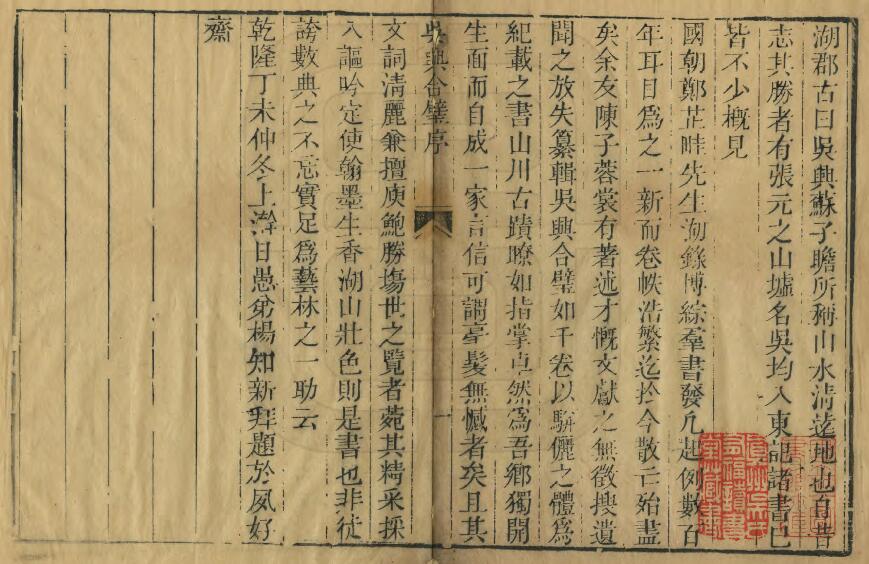 湖郡古曰吳興蘇子瞻所稱山水清遠地也自昔
志其勝者有張元之山墟名吳均入東記諸書已
皆不少概見
國朝鄭芷畦先生湖錄博綜羣書發凡起例數百
年耳目為之一新而卷帙浩繁迄於今散亡殆盡
矣余友陳子蓉裳有著述才慨文獻之無徵搜遺
聞之放失纂輯吳興合璧如干卷以駢儷之體為
紀載之書山川古蹟瞭如指掌卓然為吾鄉獨開
生面而自成一家言信可謂毫髮無憾者矣且其
吳興合璧序
一
文詞清麗兼擅庾鮑勝塲世之覽者菀其精采採
入謳吟定使翰墨生香湖山壯色則是書也非徒
誇數典之不忘實足為藝林之一助云
乾隆丁未仲冬上澣日愚弟楊知新拜題於夙好
齋